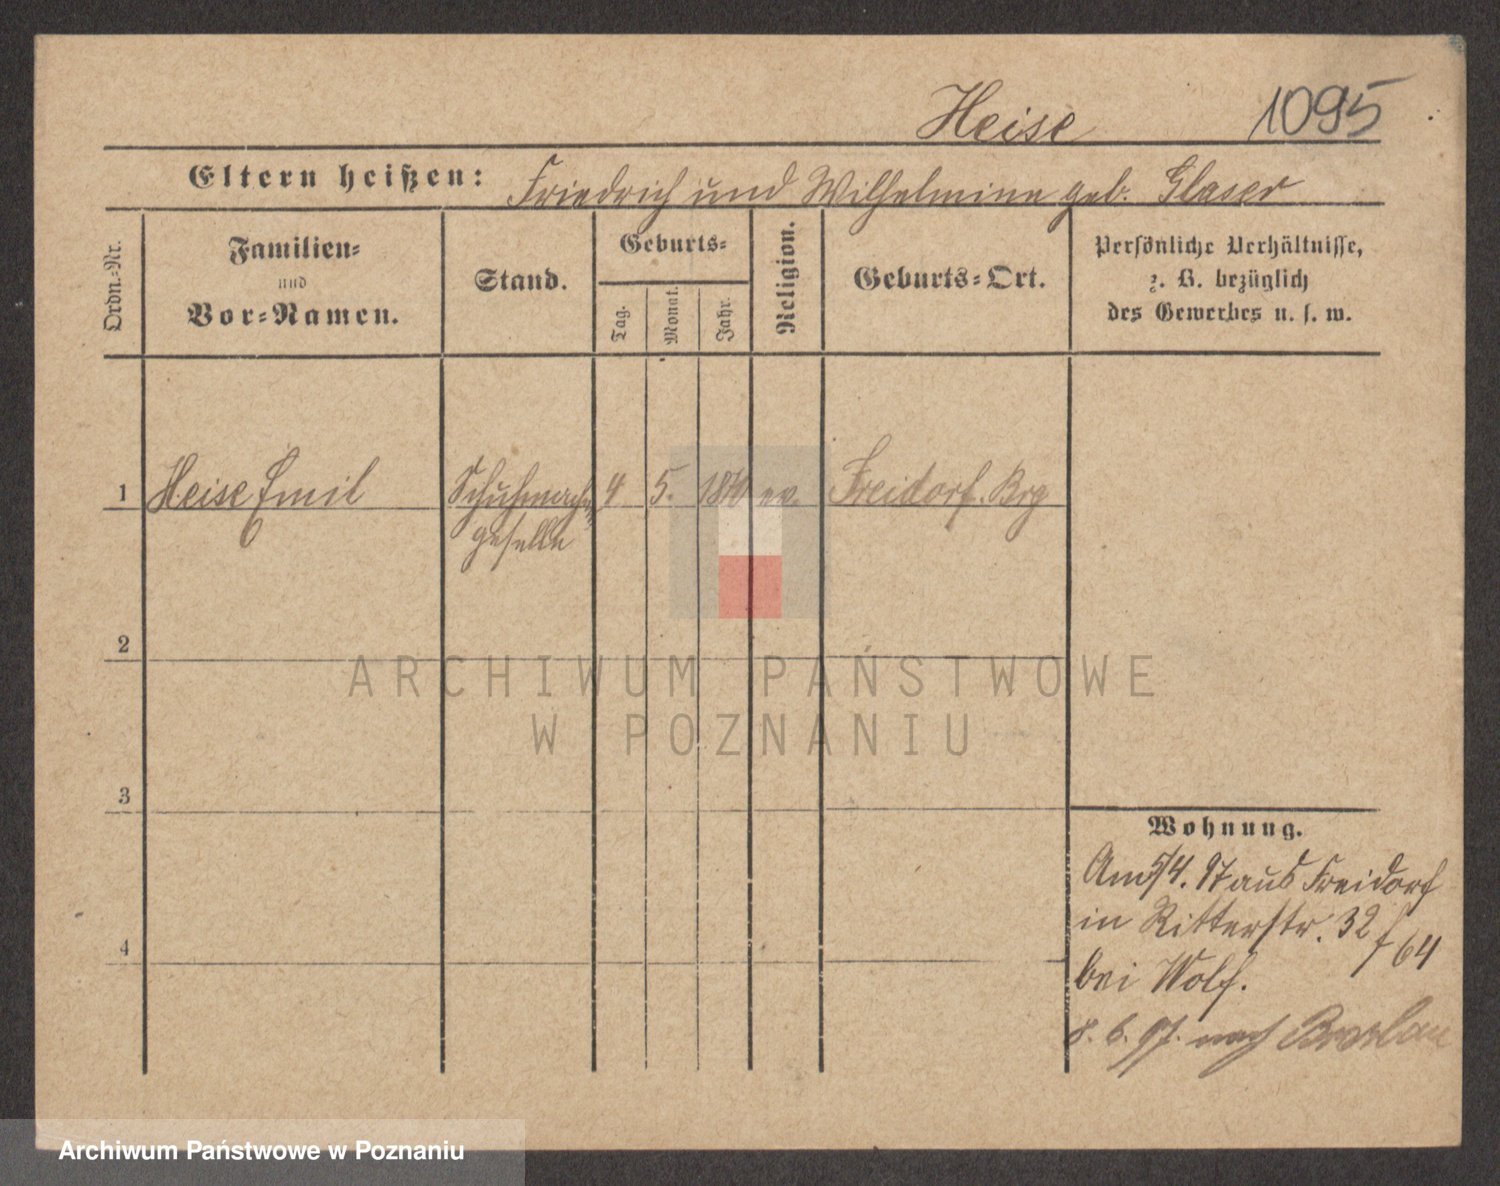 Heise 1095
Eltern heißen: Friedrich und Wilhelmine geb. Glaser
Ordn.-Nr.
Familien-
und
Vor-Namen.
Stand.
Geburts-
Tag.
Monat.
Jahr.
Religion.
Geburts-Ort.
Persönliche Verhältnisse,
z. B. bezüglich
des Gewerbes u. s. w.
1 Heise Emil Schuhmacher 4 5. ev. Freidorf. Brg
geselle
2
3
4
Wohnung.
Am 5/4. 97 aus Freidorf
in Ritterstr. 32
64
bei Wolf.
8. 6. 97. nach Breslau
ARCHIWUM PAŃSTWOWE
W POZNANIU
Archiwum Państwowe w Poznaniu